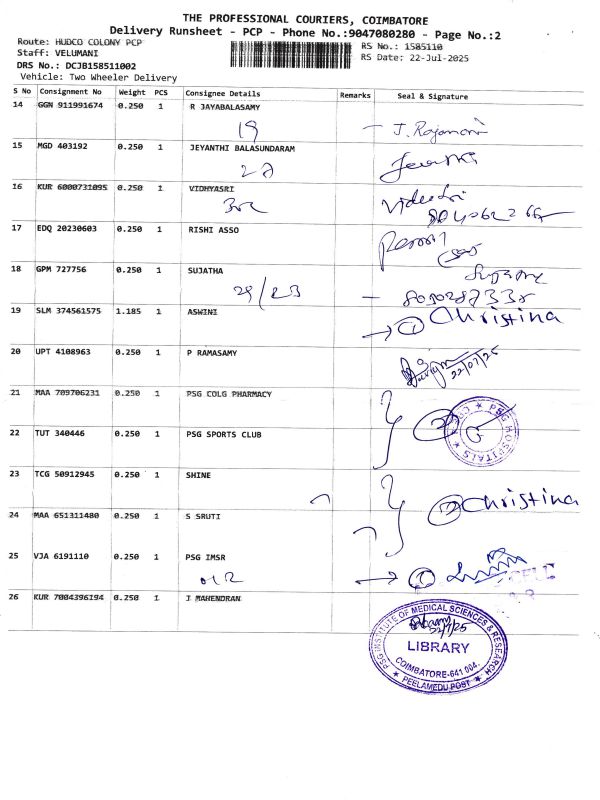 THE PROFESSIONAL COURIERS, COIMBATORE
Delivery Runsheet - PCP - Phone No.:9047080280 - Page No.:2
Route: HUDCO COLONY PCP
RS No.: 1585110
Staff: VELUMANI
RS Date: 22-Jul-2025
DRS No.: DCJB158511002
Vehicle: Two Wheeler Delivery
S No Consignment No Weight PCS Consignee Details Remarks Seal & Signature
14 GGN 911991674 0.250 1 R JAYABALASAMY
19 J. Rajamani
15 MGD 403192 0.250 1 JEYANTHI BALASUNDARAM
16 KUR 6000731095 0.250 1 VIDHYASRI
17 EDQ 20230603 0.250 1 RISHI ASSO
18 GPM 727756 0.250 1 SUJATHA
29/23
19 SLM 374561575 1.185 1 ASWINI
1 Christina
20 UPT 4108963 0.250 1 P RAMASAMY
22/07/25
21 MAA 709706231 0.250 1 PSG COLG PHARMACY
PSG HOSPITALS
22 TUT 340446 0.250 1 PSG SPORTS CLUB
23 TCG 50912945 0.250 1 SHINE
2 Christina
24 MAA 651311480 0.250 1 S SRUTI
25 VJA 6191110 0.250 1 PSG IMSR
1
26 KUR 7004396194 0.250 1 I MAHENDRAN
PSG INSTITUTE OF MEDICAL SCIENCES & RESEARCH
22/7/25
LIBRARY
COIMBATORE-641 004.
PEELAMEDU POST